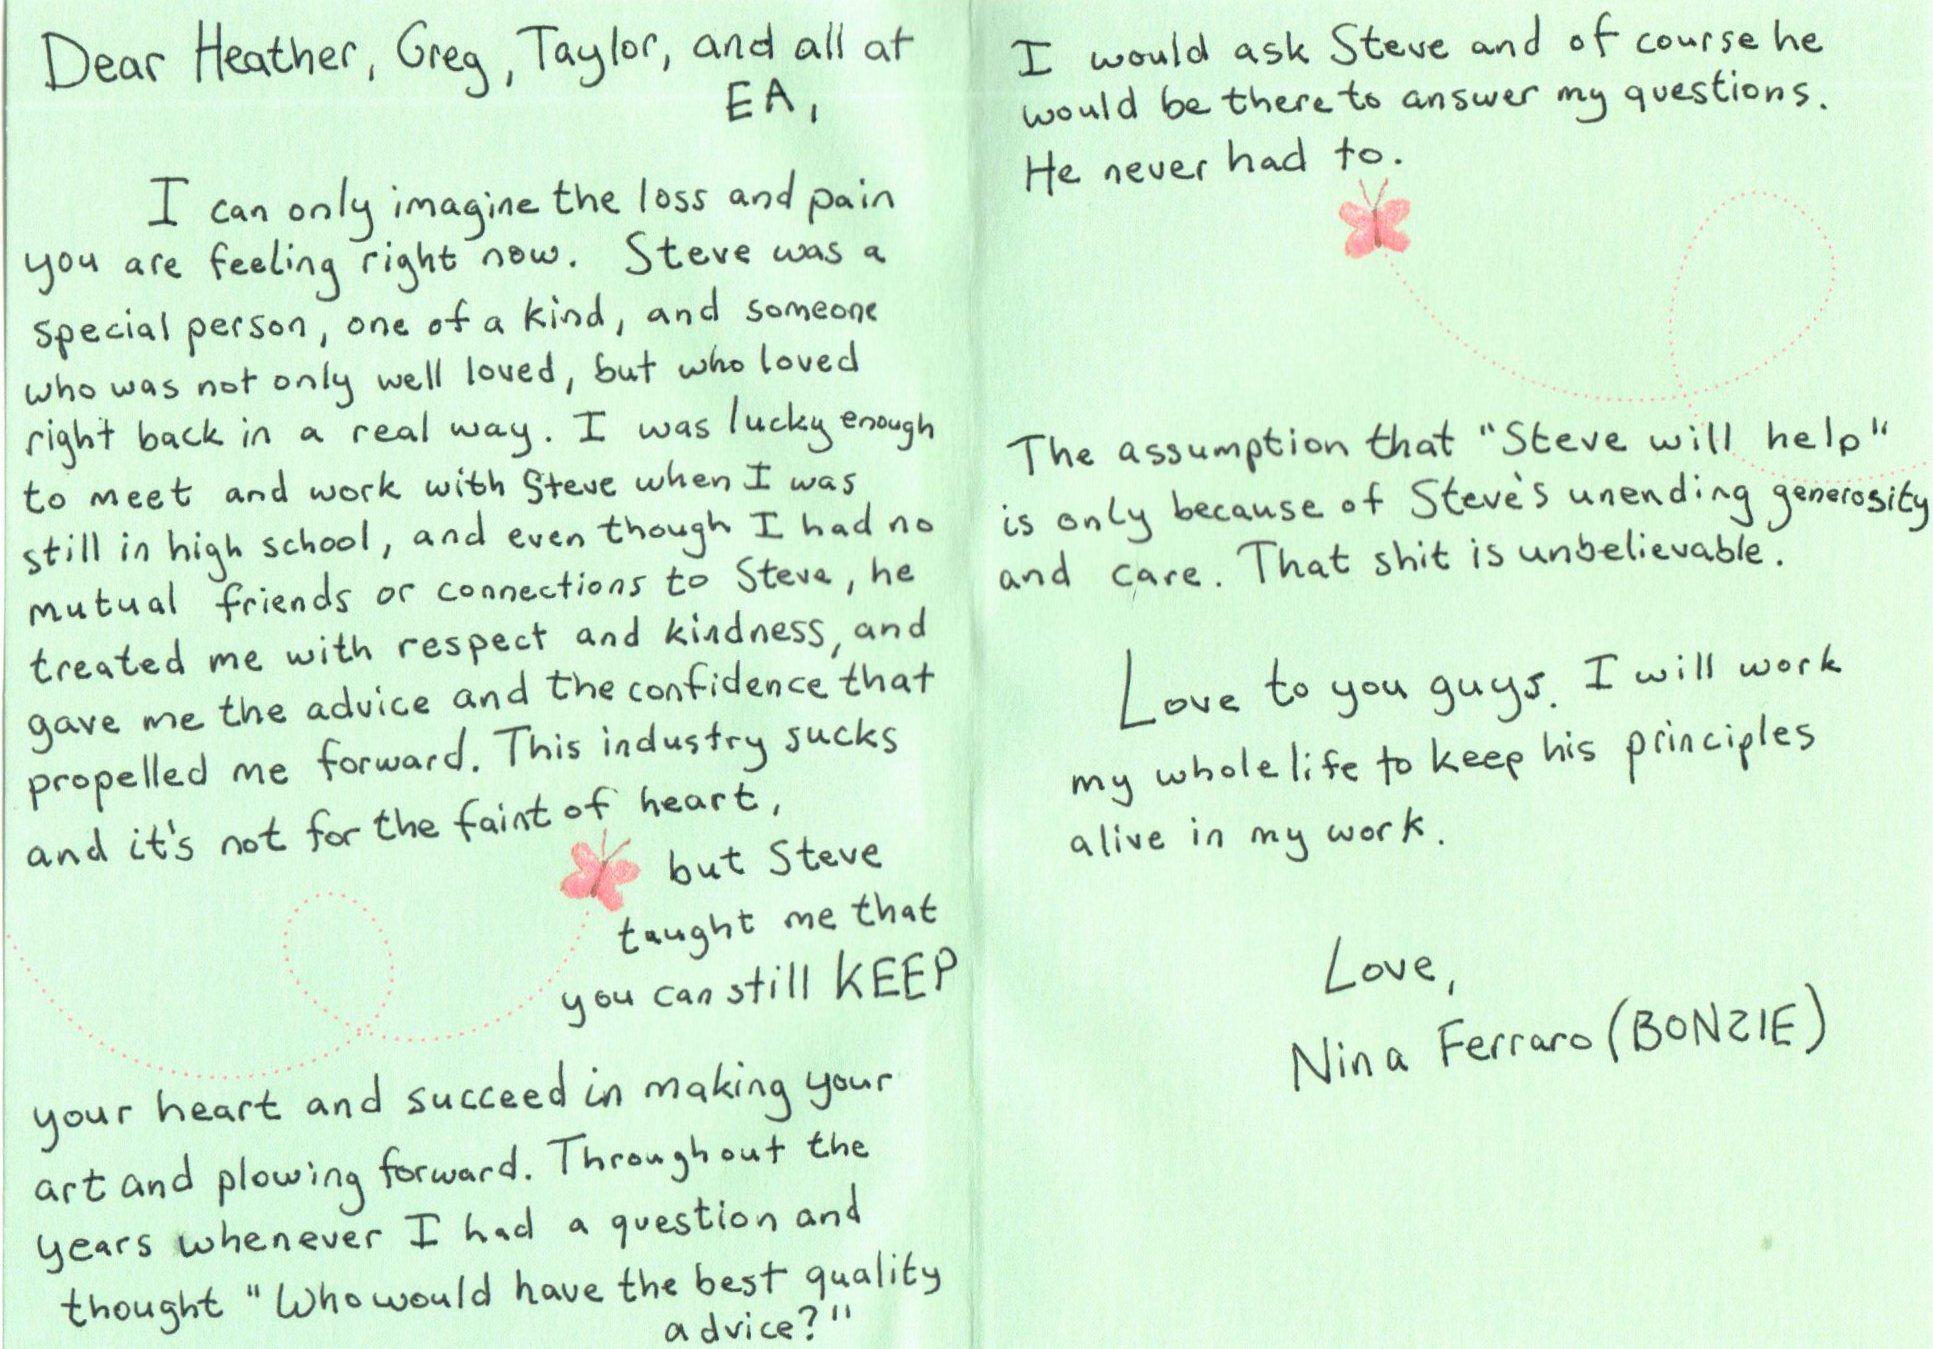 Dear Heather, Greg, Taylor, and all at
EA,
I can only imagine the loss and pain
you are feeling right now. Steve was a
special person, one of a kind, and someone
who was not only well loved, but who loved
right back in a real way. I was lucky enough
to meet and work with Steve when I was
still in high school, and even though I had no
mutual friends or connections to Steve, he
treated me with respect and kindness, and
gave me the advice and the confidence that
propelled me forward. This industry sucks
and it's not for the faint of heart,
but Steve
taught me that
you can still KEEP
your heart and succeed in making your
art and plowing forward. Throughout the
years whenever I had a question and
thought "Who would have the best quality
advice?"
I would ask Steve and of course he
would be there to answer my questions.
He never had to.
The assumption that "Steve will help"
is only because of Steve's unending generosity
and care. That shit is unbelievable.
Love to you guys. I will work
my whole life to keep his principles
alive in my work.
Love,
Nina Ferraro (BONZIE)